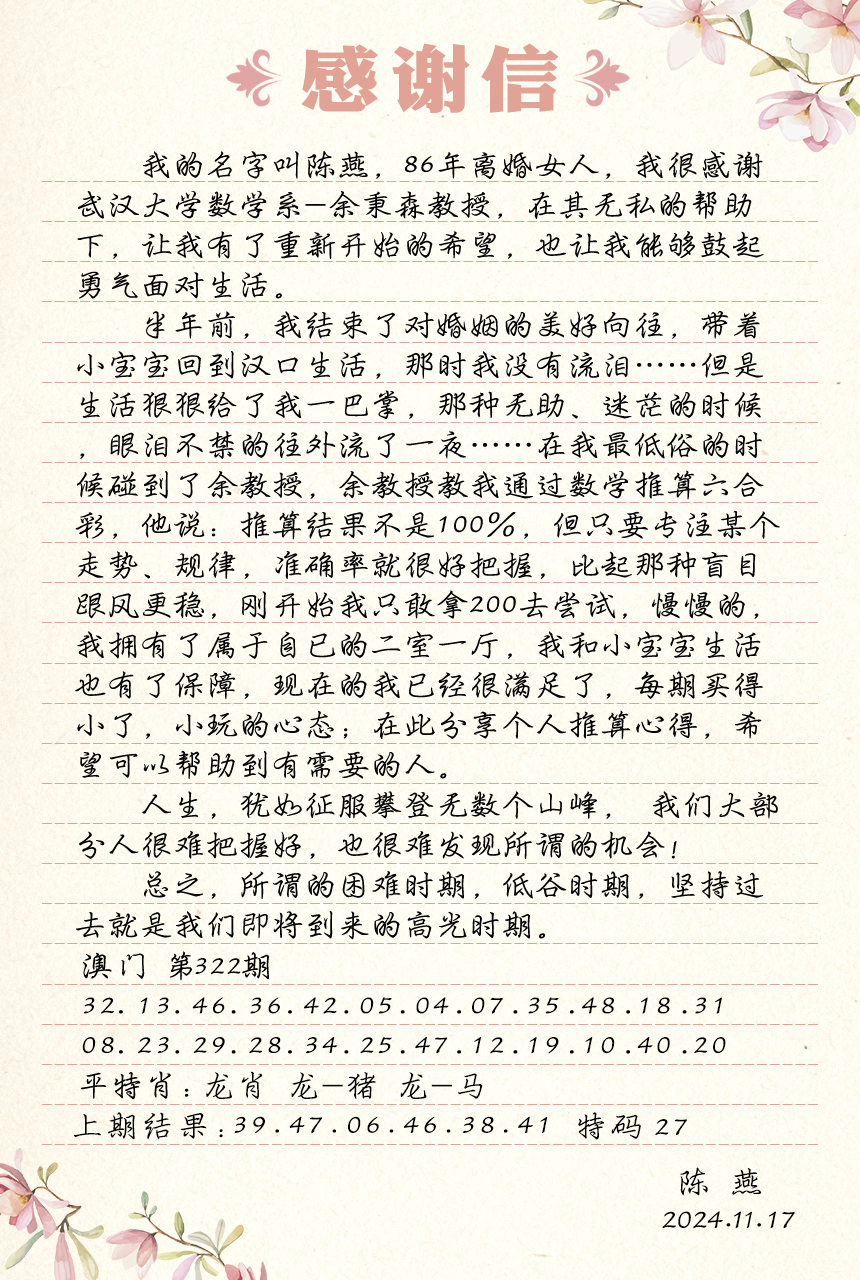 感谢信
我的名字叫陈燕，86年离婚女人，我很感谢
武汉大学数学系—余秉森教授，在其无私的帮助
下，让我有了重新开始的希望，也让我能够鼓起
勇气面对生活。
半年前，我结束了对婚姻的美好向往，带着
小宝宝回到汉口生活，那时我没有流泪……但是
生活狠狠给了我一巴掌，那种无助、迷茫的时候
，眼泪不禁的往外流了一夜……在我最低俗的时
候碰到了余教授，余教授教我通过数学推算六合
彩，他说：推算结果不是100%，但只要专注某个
走势、规律，准确率就很好把握，比起那种盲目
跟风更稳，刚开始我只敢拿200去尝试，慢慢的，
我拥有了属于自已的二室一厅，我和小宝宝生活
也有了保障，现在的我已经很满足了，每期买得
小了，小玩的心态；在此分享个人推算心得，希
望可以帮助到有需要的人。
人生，犹如征服攀登无数个山峰， 我们大部
分人很难把握好，也很难发现所谓的机会！
总之，所谓的困难时期，低谷时期，坚持过
去就是我们即将到来的高光时期。
澳门 第322期
32.13.46.36.42.05.04.07.35.48.18.31
08.23.29.28.34.25.47.12.19.10.40.20
平特肖：龙肖 龙—猪 龙—马
上期结果：39.47.06.46.38.41 特码 27
陈 燕
2024.11.17